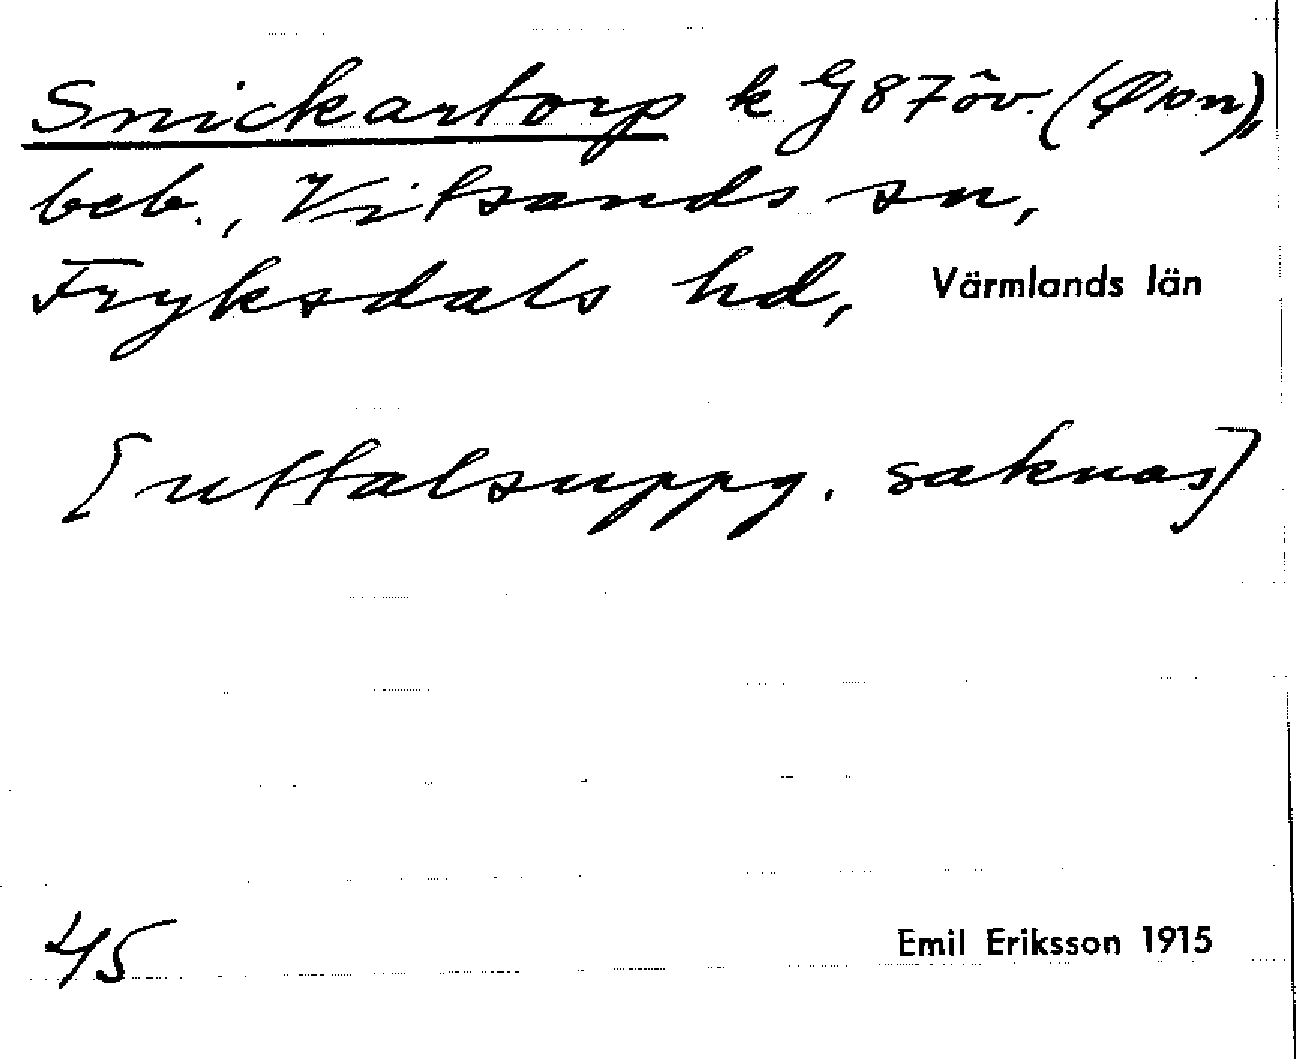 Snickartorp k G 87 öv. (
beb., Vitsands sn,
Fryksdals hd, Värmlands län
[uttalsuppg. saknas]
45 Emil Eriksson 1915